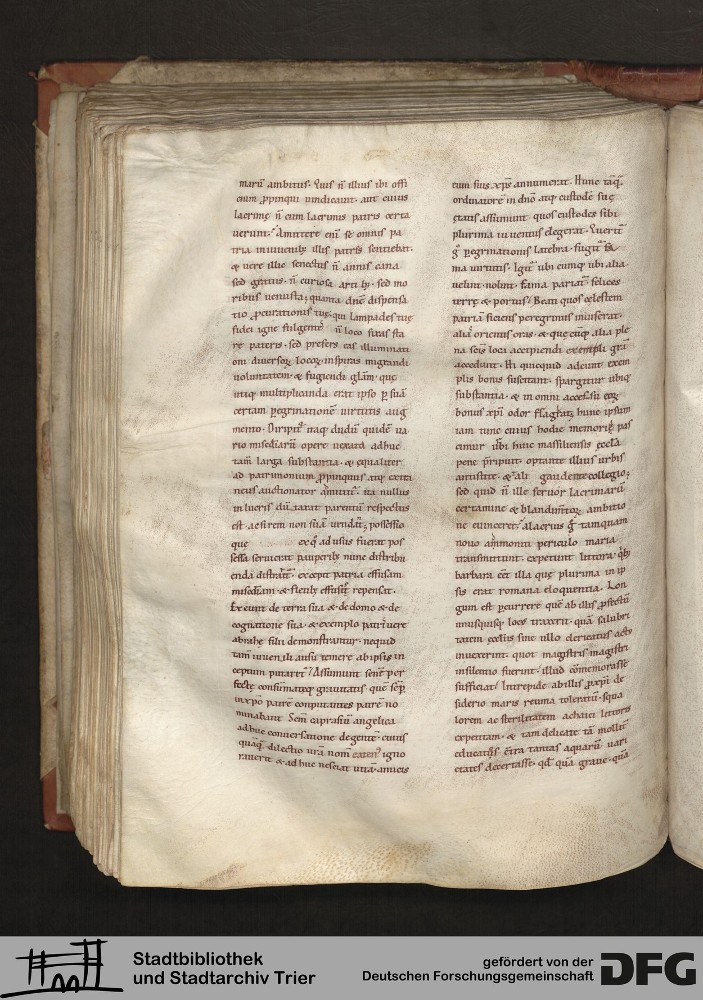 marū ambitus. Quis n̄ illius ibi offi
cium ꝓpinqui uindicauit. aut cuius
lacrimę n̄ cum lacrimis patris certa
uerunt? Amittere eni se omnis pa
tria in iuuenibꝫ illis patrīs sentiebat.
& uere illic senectus n̄ annis cana
sed gratiis. n̄ curiosa arti bꝫ. sed mo
ribus uenusta; quanta dn̄e dispensa
tio ꝓcurationis tuę; qui lampades tuę
fidei igne fulgente n̄ loco suras sta
re pateris. sed prefers eas illuminati
oni diuersoꝝ locoꝝ inspiras migrandi
uoluntatem. & fugiendi glām. quę
utiq; multiplicanda erat ipso ꝑ suā
certam ꝑegrinationē uirtutis aug
mento. Diripit̄ itaq; dudū quidē ua
rio misediarū opere uexata adhuc
tam̄ larga substantia. & equaliter
ad patrimonium ꝓpinquus atq; extra
neus auctionator
in lucris dū taxat parentū respectus
est
que ex q̄ ad usus fuerat pos
sessa seruierat pauperibꝫ nunc distribu
enda distrahit̄. excepit patria effusam
misediam. &
Exeunt de terra sua & de domo & de
cognatione sua. & exemplo patri uere
abrahę filii demonstrantur. nequid
tam̄ iuuenili ausu temere ab ipsis in
ceptum putaret̄? Assumunt senē per
fectę consūmatęq; grauitatis. quē sēp
in xp̄o patrē conputantes patrē no
minabant. Sēm caprasiū angelica
adhuc conuersatione degentē. cuius
quāq; dilectio urā nom̄ eaten igno
rauerit & adhuc nesciat uitā. amicis
tum suis xp̄s annumerat. Hunc itaq;
ordinatore in dn̄o atq; custodē suę
ętatis assumunt quos custodes sibi
plurima iuuentus elegerat. Queritur
g̊ ꝑegrinationis latebra. fugit̄ fa
ma uirtutis. Igit̄ ubi cumq; ubi alia
uelint nolint fama pariat̄ felices
terrę & portus! Beati quos celestem
patriā sitiens peregrinus inuiserat.
aliā orientis oras. & quęcūq; alia ple
na scīs loca accipiendi exempli grā
accedunt. Hi quicquid adeunt exem
plis bonis suscitant. spargitur ubiq;
substantia. & in omni accessu eoꝝ
bonus xp̄i odor flagrat; hinc ipsum
iam tunc cuius hodie memoria pas
cimur ubi hunc massiliensis eccl̄a
pene p̄ripuit optante illius urbis
antistite. & tali gaudente collegio;
sed quid n̄ ille feruor lacrimarū
certamine & blandimtoꝝ ambitio
ne euinceret? alacrius g̊ tamquam
nouo ammoniti periculo maria
transmittunt. expetunt littora. qꝫ
barbara eēt illa quę plurima in ip
sis erat romana eloquentia. Lon
gum est ꝑcurrere quē ab illis ꝓfectū
unusquisq; locus traxerit. quā salubri
tatem eccl̄iis sine ullo clericatus actu
inuexerint. quot magistris magistri
in silentio fuerint? illud cōmemorasse
sufficiat! Intrepide ab illis ꝓ xp̄i de
siderio maris reuma toleratū. squa
lorem ac sterilitatem achaici littoris
expetitam. & tam delicate tā mollit̄
educatis c̄tra tantas aquarū uari
etates decertasse. qd̄ quā graue. quā
Stadtbibliothek
und Stadtarchiv Trier
gefördert von der
Deutschen Forschungsgemeinschaft
DFG